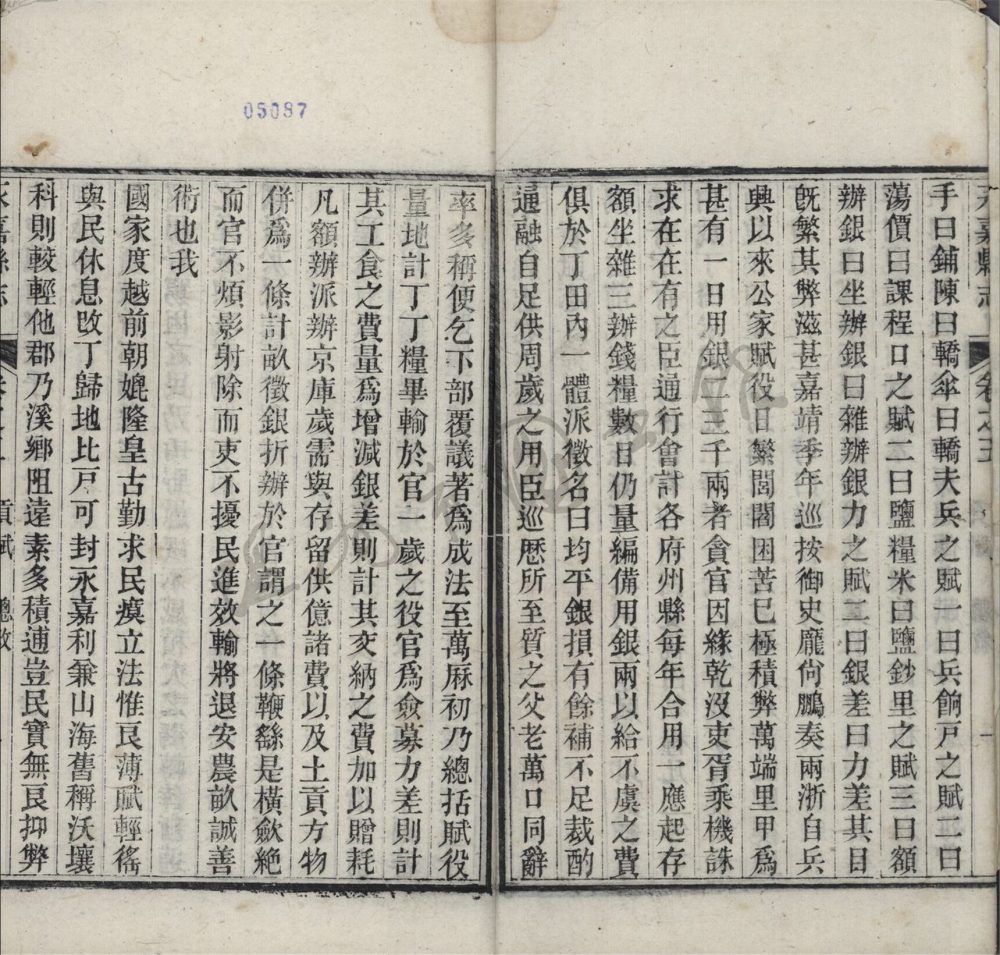 05087
永嘉縣志 卷之五
手曰鋪陳曰轎傘曰轎夫兵之賦一曰兵餉戸之賦二曰
蕩價曰課程口之賦二曰鹽糧米曰鹽鈔里之賦三曰額
辦銀曰坐辦銀曰雜辦銀力之賦二曰銀差曰力差其目
旣繁其弊滋甚嘉靖季年巡按御史龐尙鵬奏兩浙自兵
興以來公家賦役日繁閭閻困苦已極積弊萬端里甲爲
甚有一日用銀二三千兩者貪官因緣乾沒吏胥乘機誅
求在在有之臣通行會計各府州縣每年合用一應起存
額坐雜三辦錢糧數目仍量編備用銀兩以給不虞之費
俱於丁田內一體派徵名曰均平銀損有餘補不足裁酌
通融自足供周歲之用臣巡歷所至質之父老萬口同辭
率多稱便乞下部覆議著爲成法至萬厤初乃總括賦役
量地計丁丁糧畢輸於官一歲之役官爲僉募力差則計
其工食之費量爲增減銀差則計其交納之費加以贈耗
凡額辦派辦京庫歲需與存留供億諸費以及土貢方物
併爲一條計畝徵銀折辦於官謂之一條鞭繇是橫斂絕
而官不煩影射除而吏不擾民進效輸將退安農畝誠善
術也我
國家度越前朝媲隆皇古勤求民瘼立法惟良薄賦輕徭
與民休息改丁歸地比戸可封永嘉利兼山海舊稱沃壤
科則較輕他郡乃溪鄉阻遠素多積逋豈民實無良抑弊
永嘉縣志 貢賦 總敘